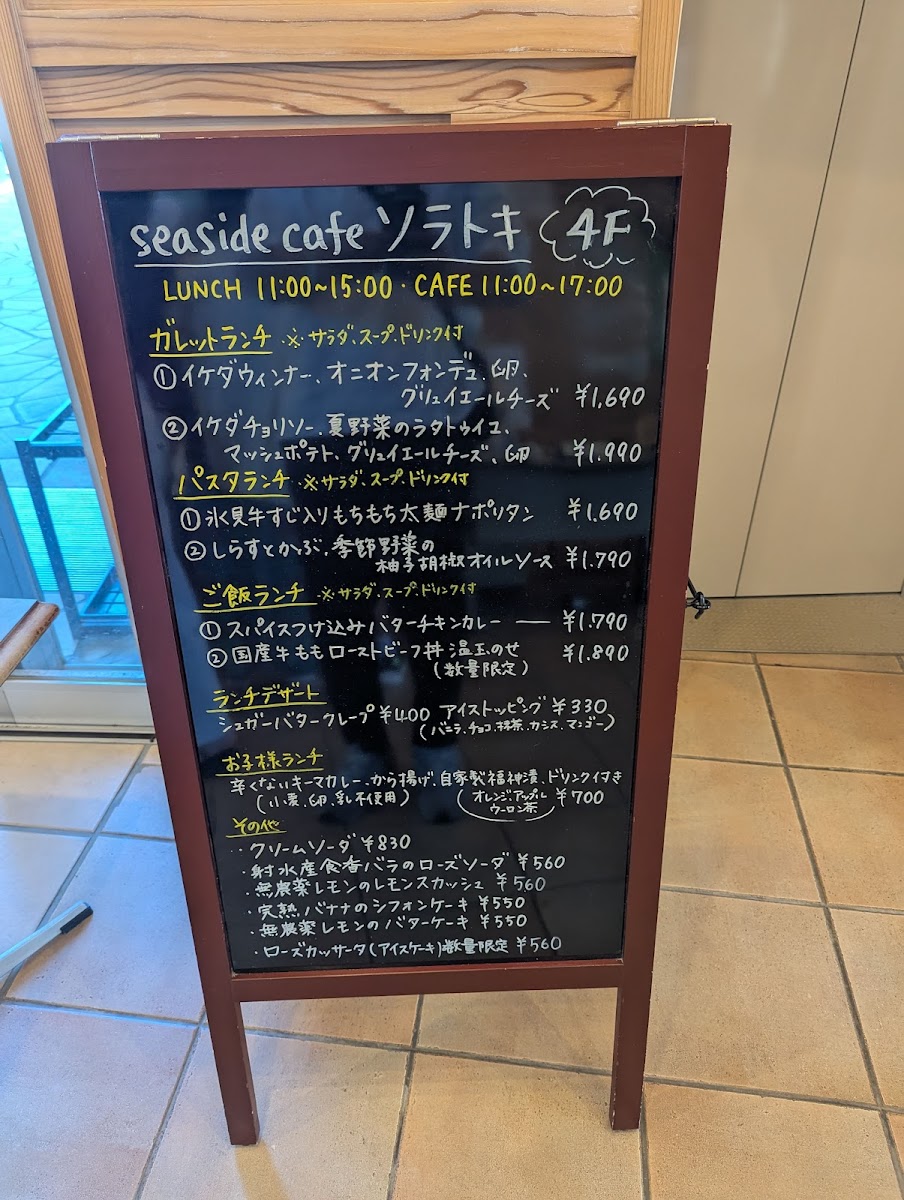 seaside cafe ソラトキ 4F
LUNCH 11:00~15:00・CAFE 11:00~17:00
ガレットランチ ※サラダ、スープ、ドリンク付
①イケダウィンナー、オニオンフォンデュ、卵、
グリュイエールチーズ ¥1,690
②イケダチョリソー、夏野菜のラタトゥイユ、
マッシュポテト、グリュイエールチーズ、卵 ¥1,990
パスタランチ ※サラダ、スープ、ドリンク付
①氷見牛すじ入りもちもち太麺ナポリタン ¥1,690
②しらすとかぶ、季節野菜の
柚子胡椒オイルソース ¥1,790
ご飯ランチ ※サラダ、スープ、ドリンク付
①スパイスつけ込みバターチキンカレー ― ¥1,790
②国産牛ももローストビーフ丼 温玉のせ ¥1,890
(数量限定)
ランチデザート
シュガーバタークレープ ¥400 アイストッピング ¥330
(バニラ、チョコ、抹茶、カシス、マンゴー)
お子様ランチ
辛くないキーマカレー、から揚げ、自家製福神漬、ドリンク付き
(小麦、卵、乳不使用) (オレンジ、アップル ¥700
ウーロン茶)
その他
・クリームソーダ ¥830
・射水産食香バラのローズソーダ ¥560
・無農薬レモンのレモンスカッシュ ¥560
・完熟バナナのシフォンケーキ ¥550
・無農薬レモンのバターケーキ ¥550
・ローズカッサータ(アイスケーキ)数量限定 ¥560